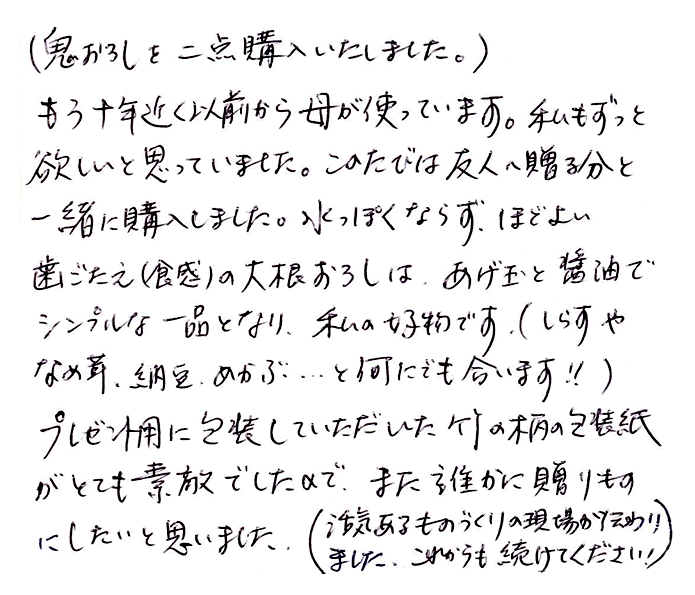 (鬼おろしを二点購入いたしました。)
もう十年近く以前から母が使っています。私もずっと
欲しいと思っていました。このたびは友人へ贈る分と
一緒に購入しました。水っぽくならず、ほどよい
歯ごたえ(食感)の大根おろしは、あげ玉と醤油で
シンプルな一品となり、私の好物です。(しらすや
なめ茸、納豆、めかぶ…と何にでも合います!!)
プレゼント用に包装していただいた竹の柄の包装紙
がとても素敵でしたので、また誰かに贈りもの
にしたいと思いました。
(活気あるものづくりの現場が伝わり
ました。これからも続けてください!)